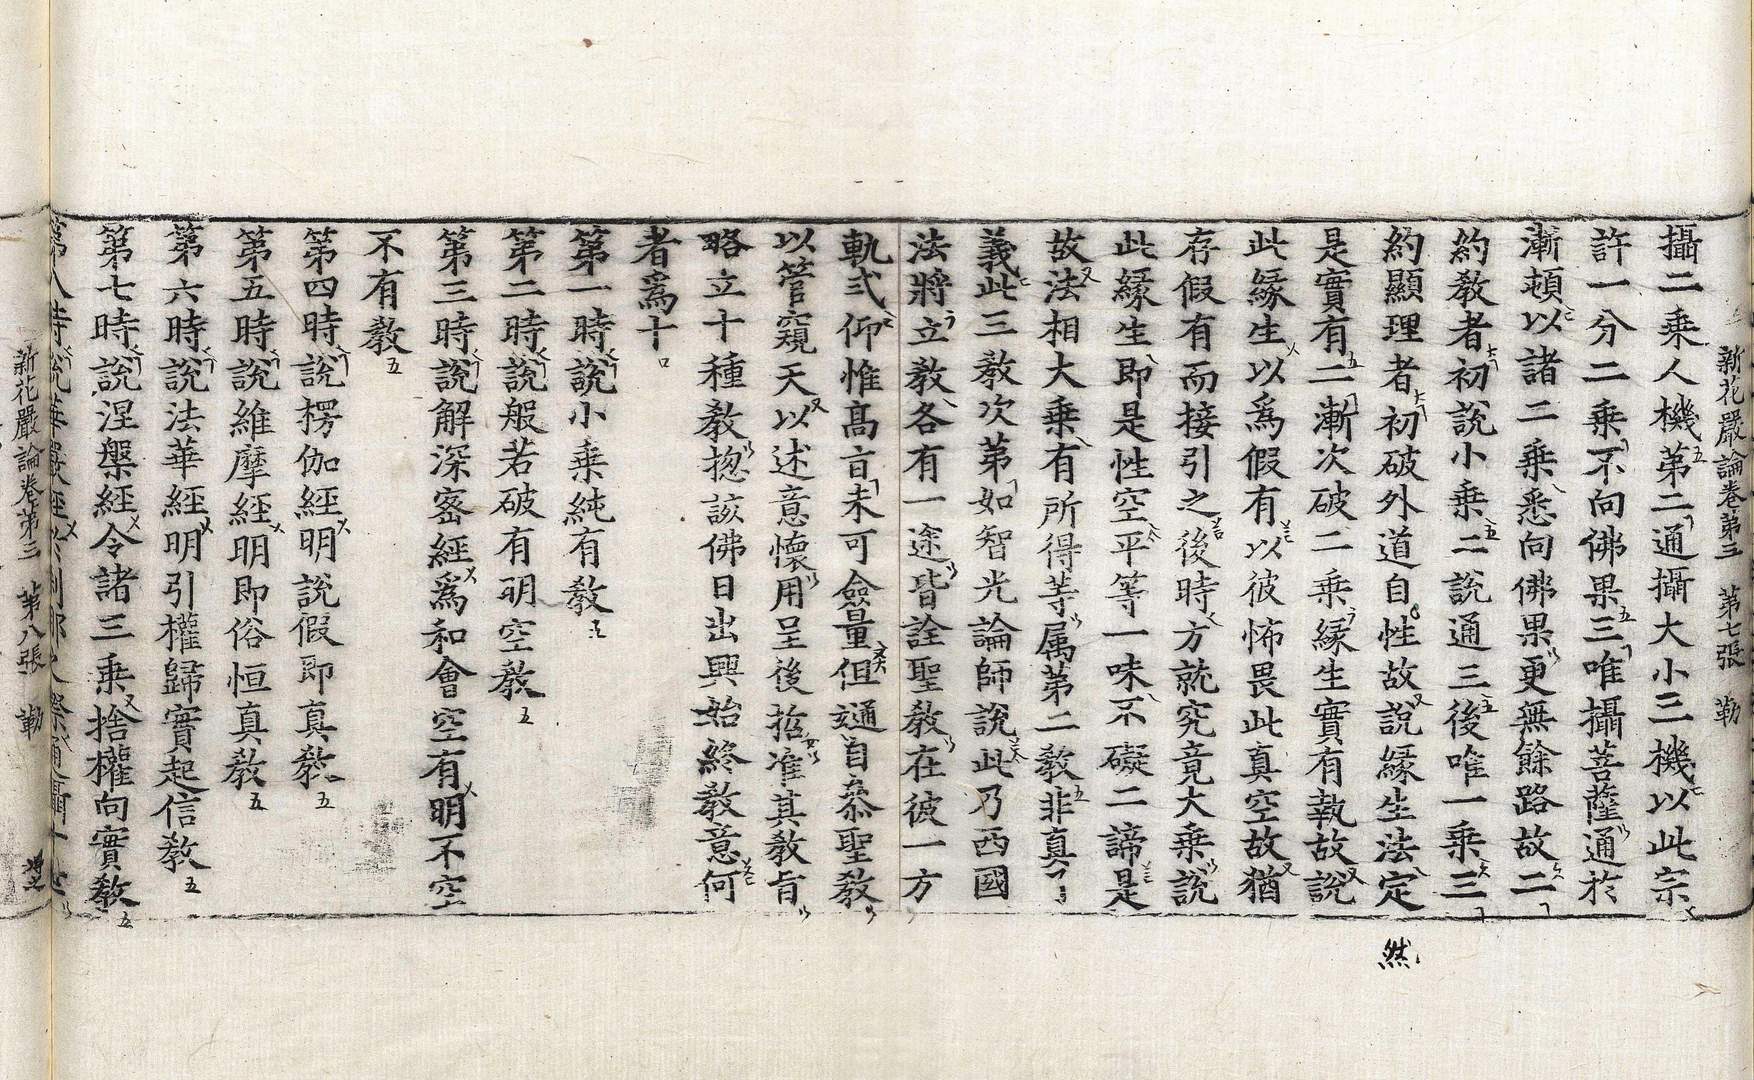 新花嚴論卷第三　第七張　勒
攝二乘人機第二通攝大小三機以此宗
許一分二乘不向佛果三唯攝菩薩通於
漸頓以諸二乘悉向佛果更無餘路故二
約教者初說小乘二說通三後唯一乘三
約顯理者初破外道自性故說緣生法定
然
是實有二漸次破二乘緣生實有執故說
此緣生以爲假有以彼怖畏此真空故猶
存假有而接引之後時方就究竟大乘說
此緣生即是性空平等一味不礙二諦是
故法相大乘有所得等属第二教非真了
義此三教次第如智光論師說此乃西國
法將立教各有一途皆詮聖教在彼一方
軌式仰惟髙㫖未可僉量但通自叅聖教
以管窺天以述意懷用呈後哲准其教旨
略立十種教揔該佛日出興始終教意何
者爲十
第一時說小乘純有教
第二時說般若破有明空教
第三時說解深宻經爲和會空有明不空
不有教
第四時說楞伽經明說假即真教
第五時說維摩經明即俗恒真教
第六時說法華經明引權歸實起信教
第七時說涅槃經令諸三乘捨權向實教
新花嚴論卷第三　第八張　勒